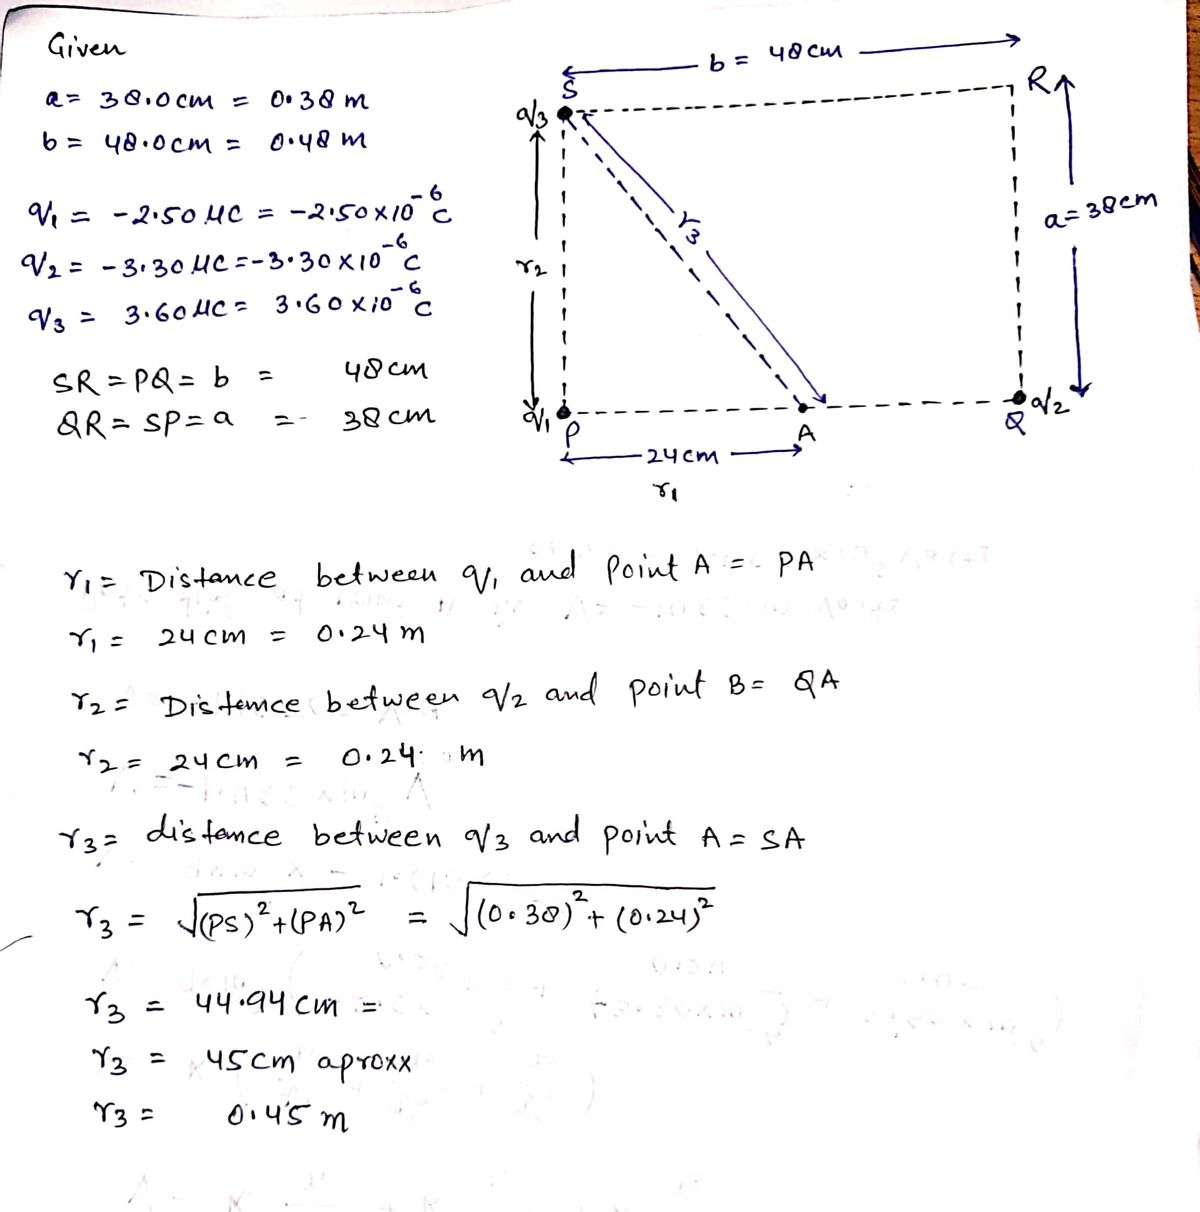 Given
a = 38.0cm = 0.38 m
b = 48.0cm = 0.48 m
q1 = -2.50 µC = -2.50×10^-6 C
q2 = -3.30 µC = -3.30×10^-6 C
q3 = 3.60 µC = 3.60×10^-6 C
SR = PQ = b = 48 cm
QR = SP = a = 38 cm
b = 48 cm
S
R
q3
r3
a = 38cm
r2
q1
P
A
Q
q2
24cm
r1
r1 = Distance between q1 and Point A = PA
r1 = 24 cm = 0.24 m
r2 = Distance between q2 and point B = QA
r2 = 24 cm = 0.24 m
r3 = distance between q3 and point A = SA
r3 = √(PS)²+(PA)² = √(0.38)²+(0.24)²
r3 = 44.94 cm =
r3 = 45 cm aproxx
r3 = 0.45 m